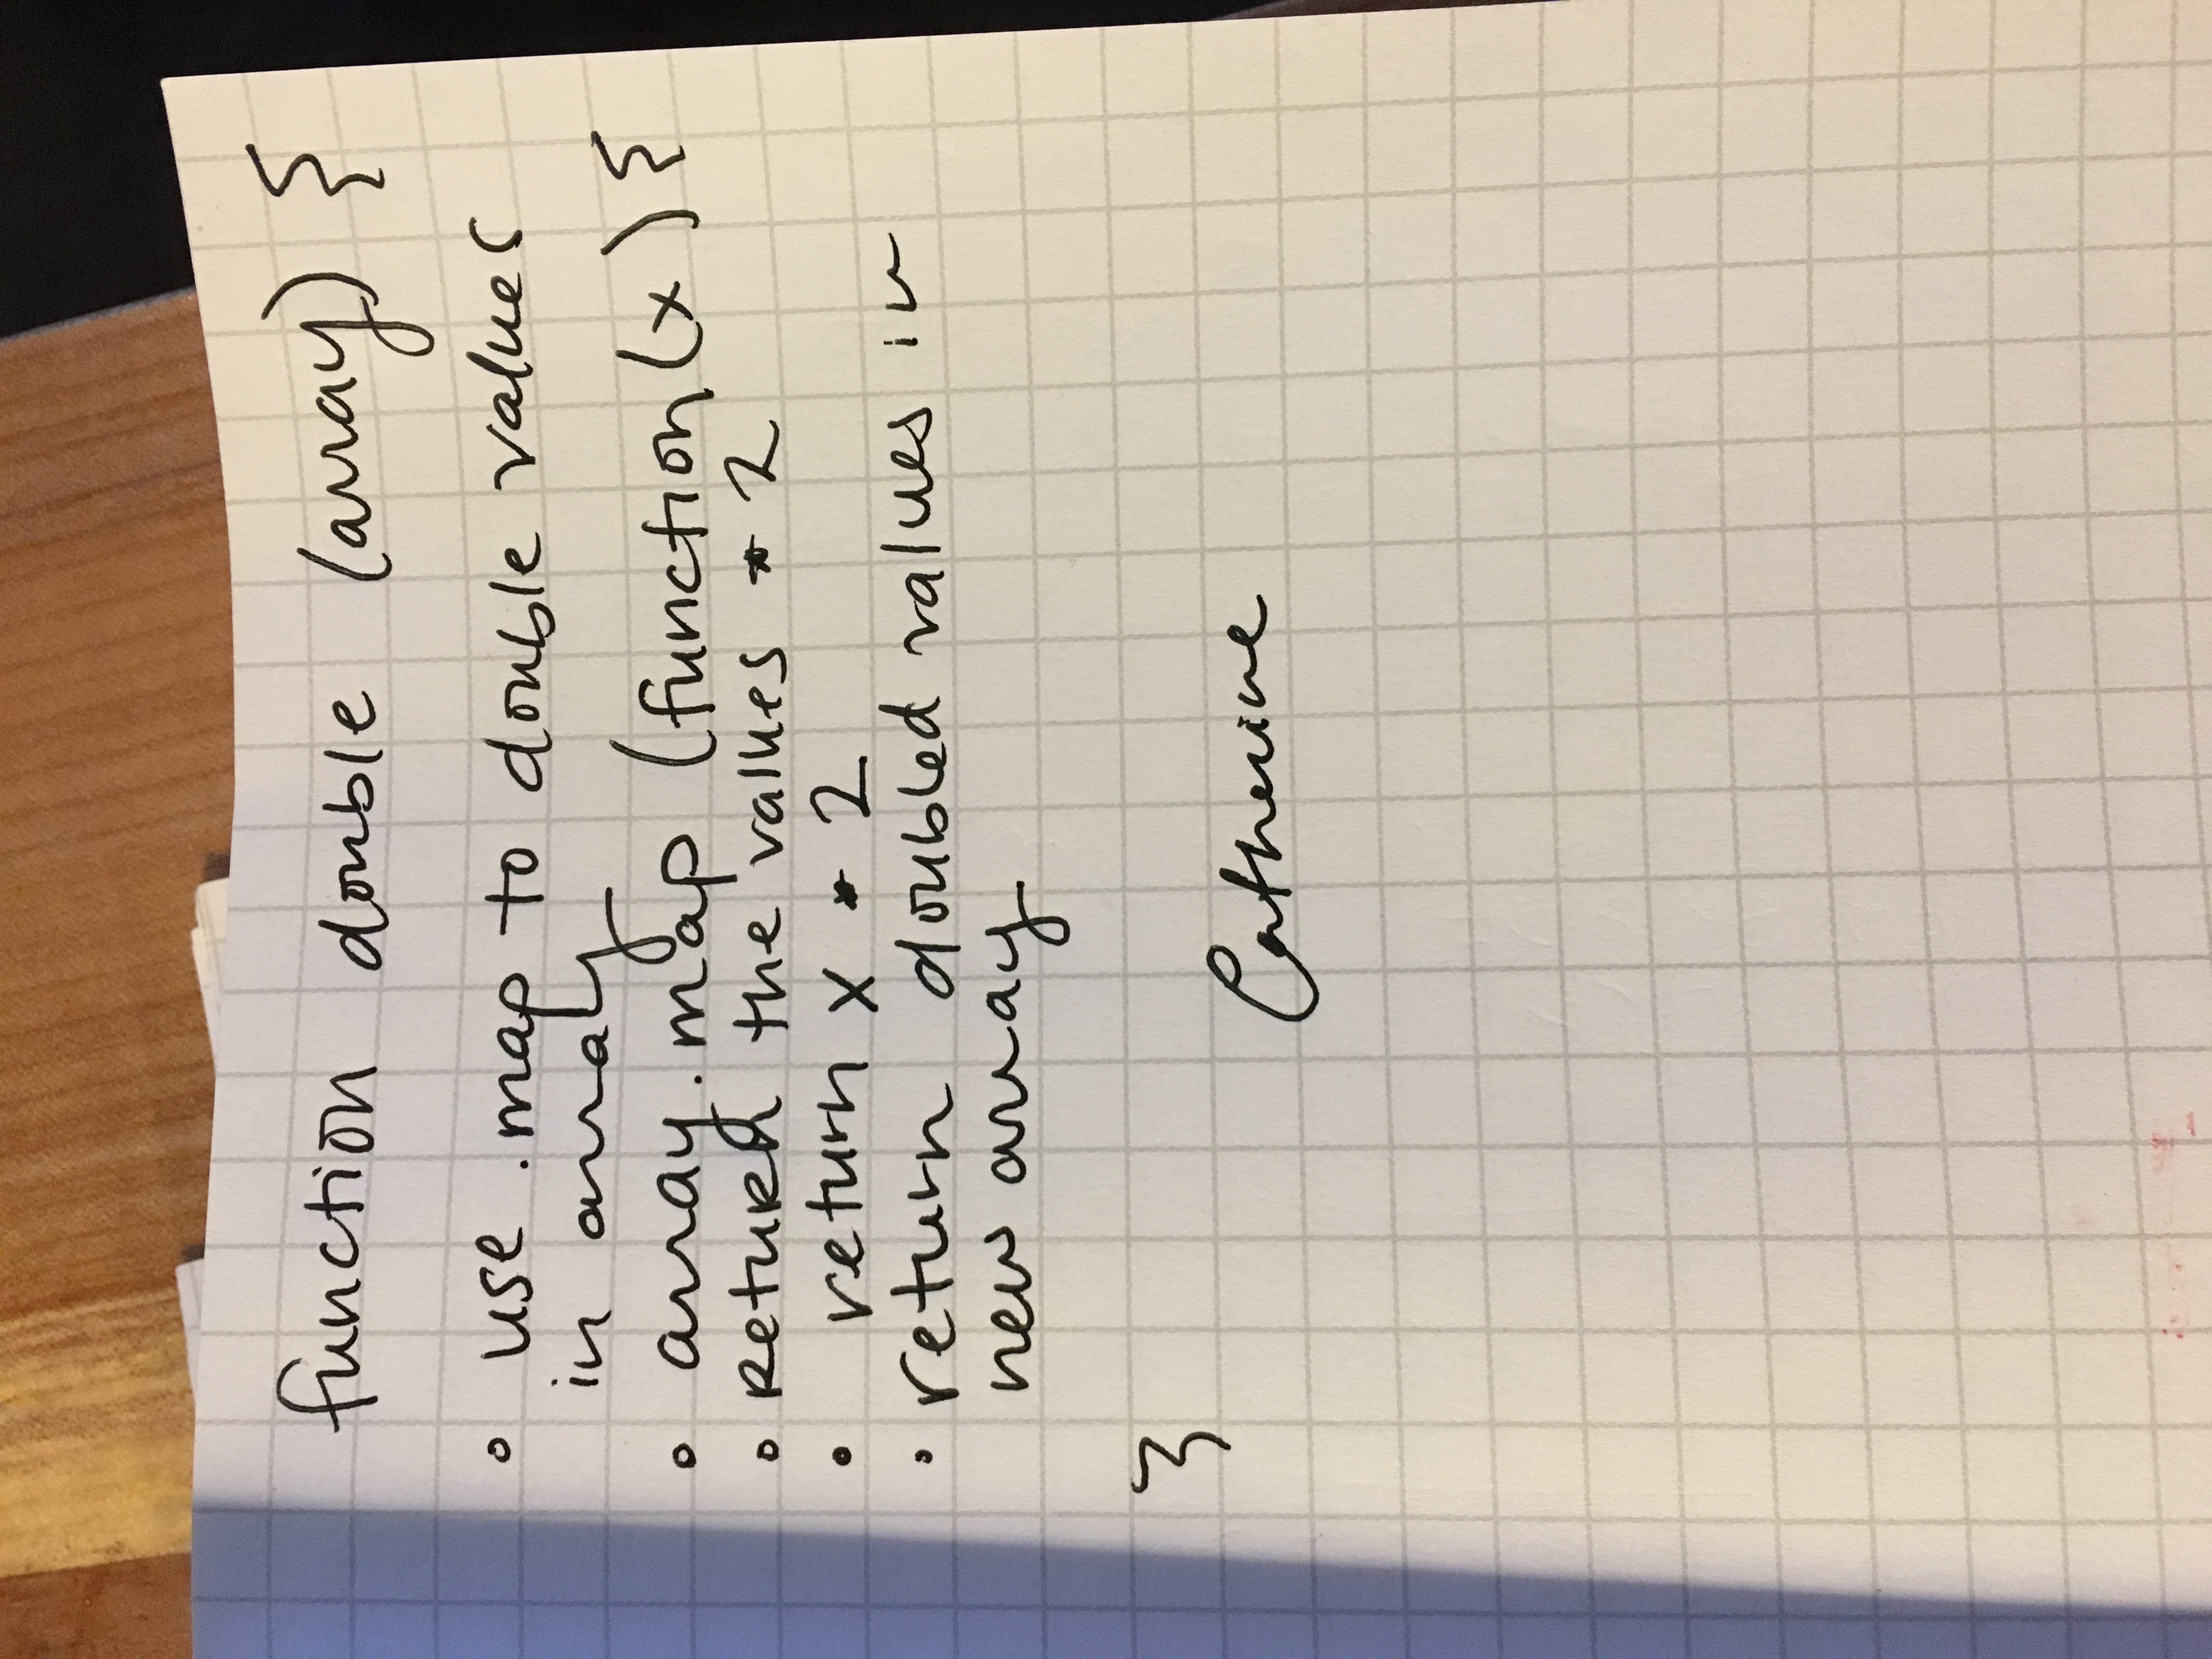 function double (array) {
• use .map to double values
in array
• array.map (function(x) {
• Return the values * 2
• return x * 2
• return doubled values in
new array
}
Catherine